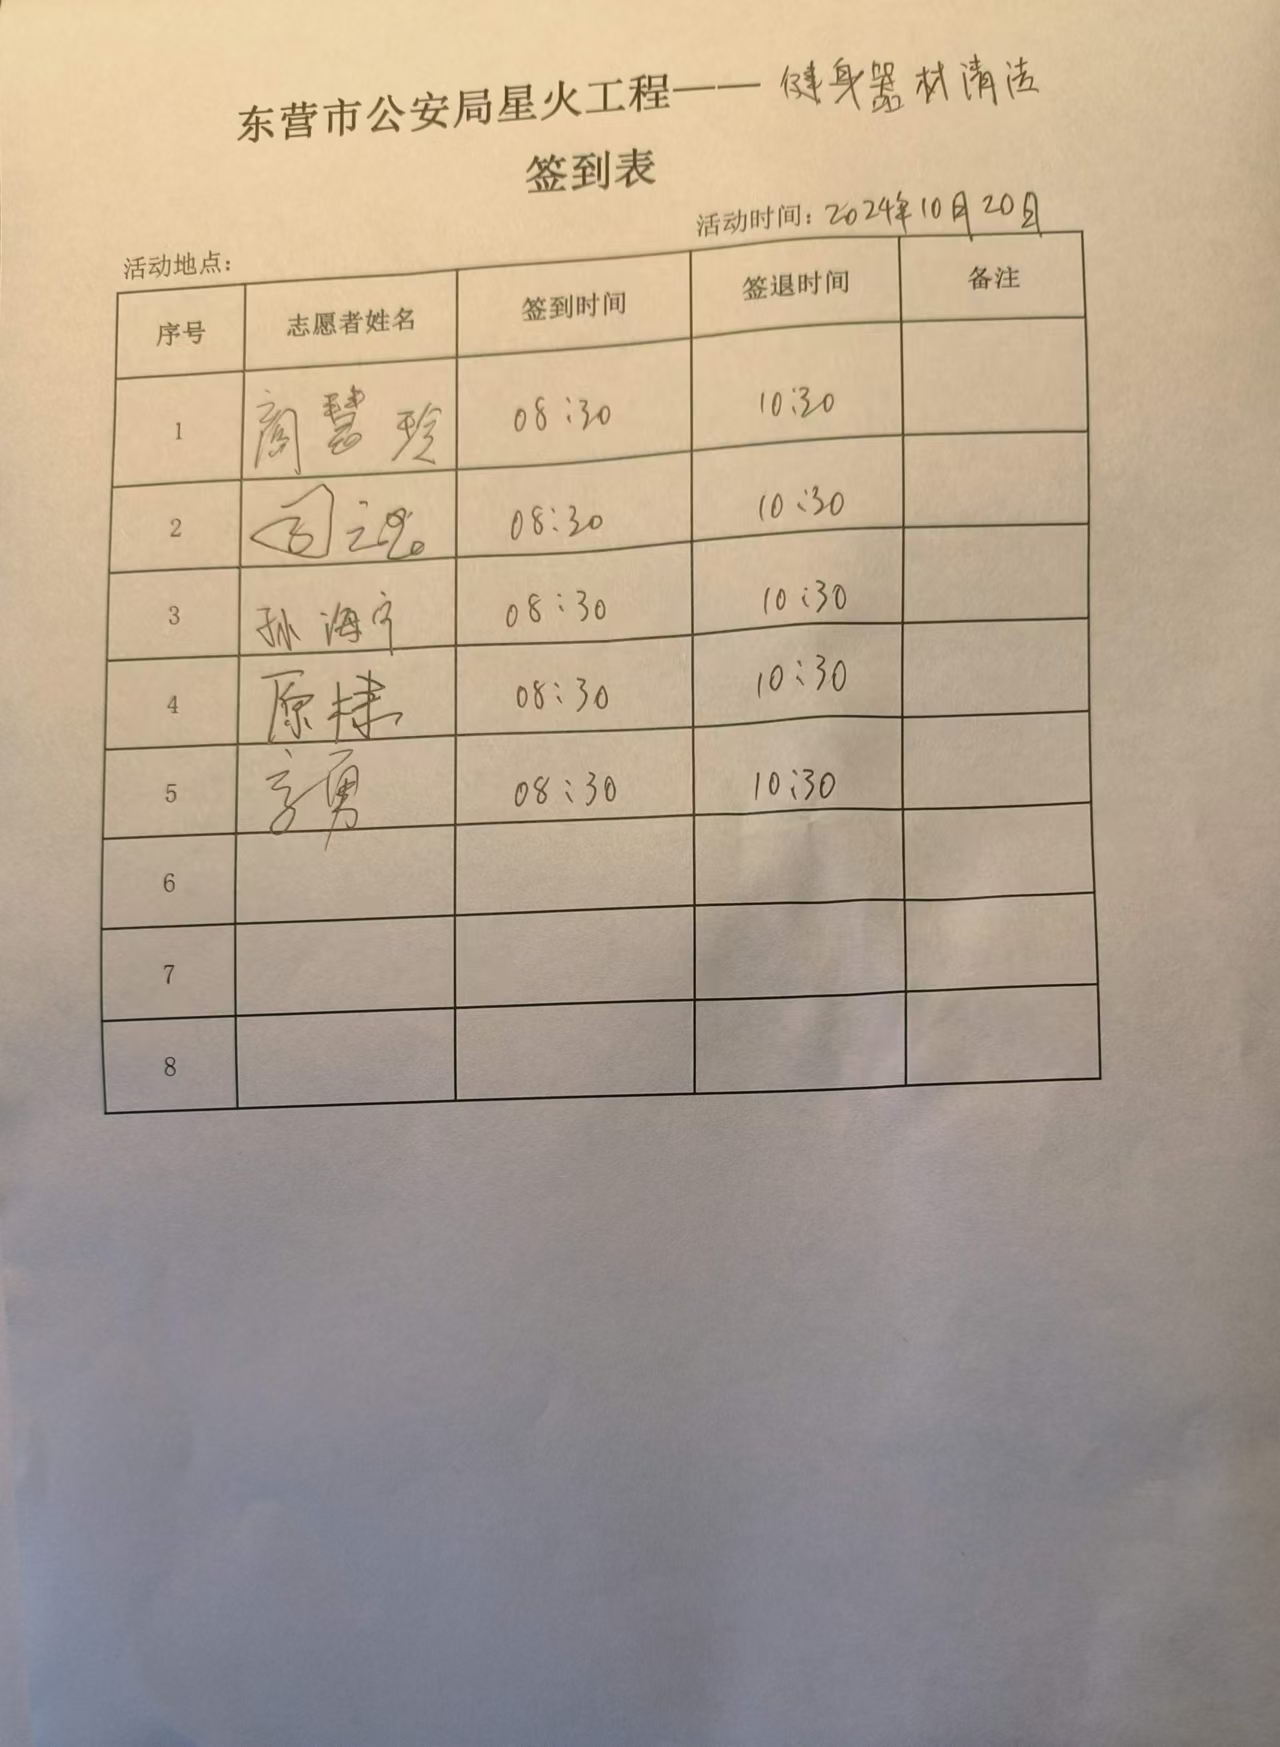 东营市公安局星火工程——健身器材清洁
签到表
活动时间：2024年10月20日
活动地点：
序号 志愿者姓名 签到时间 签退时间 备注
1 商慧珍 08:30 10:30
2 08:30 10:30
3 孙海宁 08:30 10:30
4 原棣 08:30 10:30
5 08:30 10:30
6
7
8